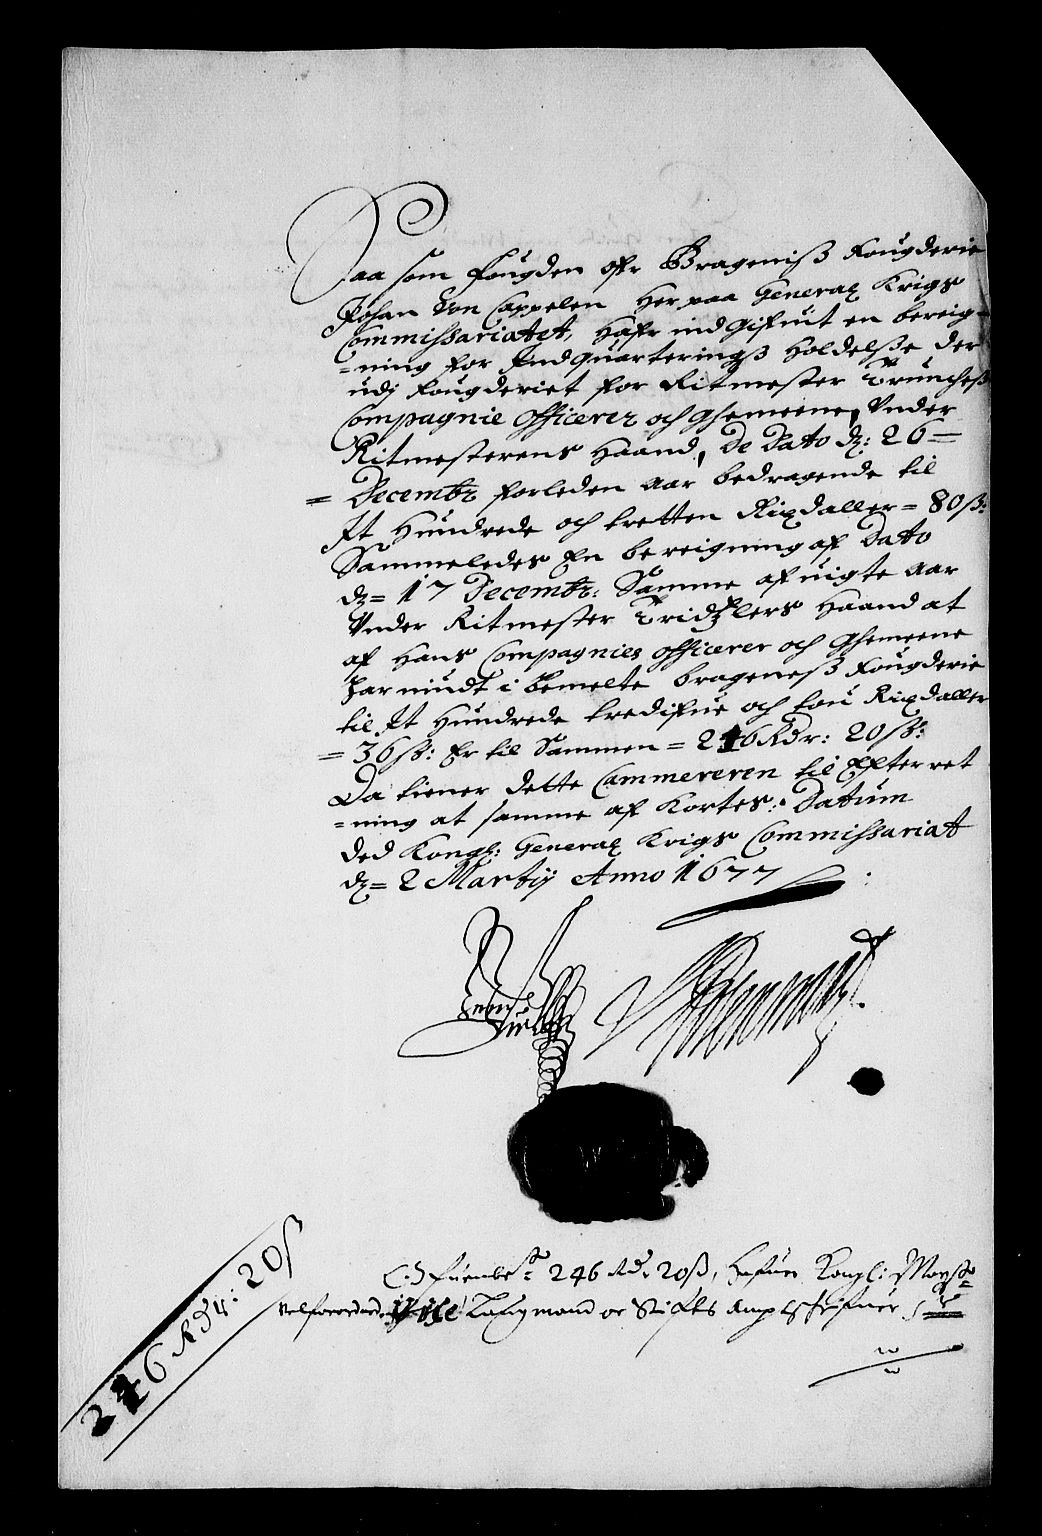 Saa som Fougden ofr Bragenis Fougderie
Johan Von Cappelen Her paa General Krigs
Commissariatet, Hafr ind Gifuit en bereig-
=ning for Indquarteringß Holdelsse der
udj Fougderiet for Ritmester Brüncheß
Compagnie Officerer och Ghemeene, Vnder
Ritmesterens Haand, De Dato dz: 26=
= Decembr forleden Aar bedragende til
It Hundrede och tretten Rixdaller = 80ß:
Sammeledes En bereigning af Dato
dz= 17 Decembr: Samme afuigte Aar
Vnder Ritmester Haand at
af Hans Compagnies officerer och Ghemeene
Har niudt i bemelte brageneß Fougderie
til It Hundrede tredifue och tou Rixdaller
= 36ß: Er til Sammen = 246 Rdr: 20ß:
Da tiener dette Cammereren til Efterret
=ning at samme af Kortes: Datum
Ved Kongl: General Krigs Commissariat
dz= 2 Martij Anno 1677
Juell
246 Rd: 20ß, Hafuer Kongl: Mayst
Laugmand oc Stifts Amptschrifuer
246 Rdr: 20ß